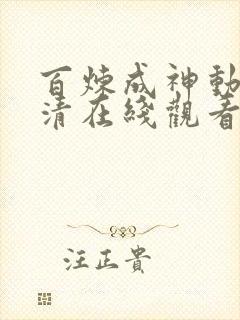 百煉成神動
清在綫觀看
汪正貴